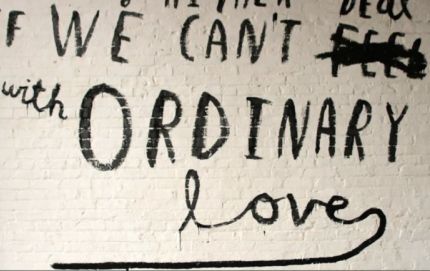 Deal
F WE CAN'T FEEL
with ORDINARY
love